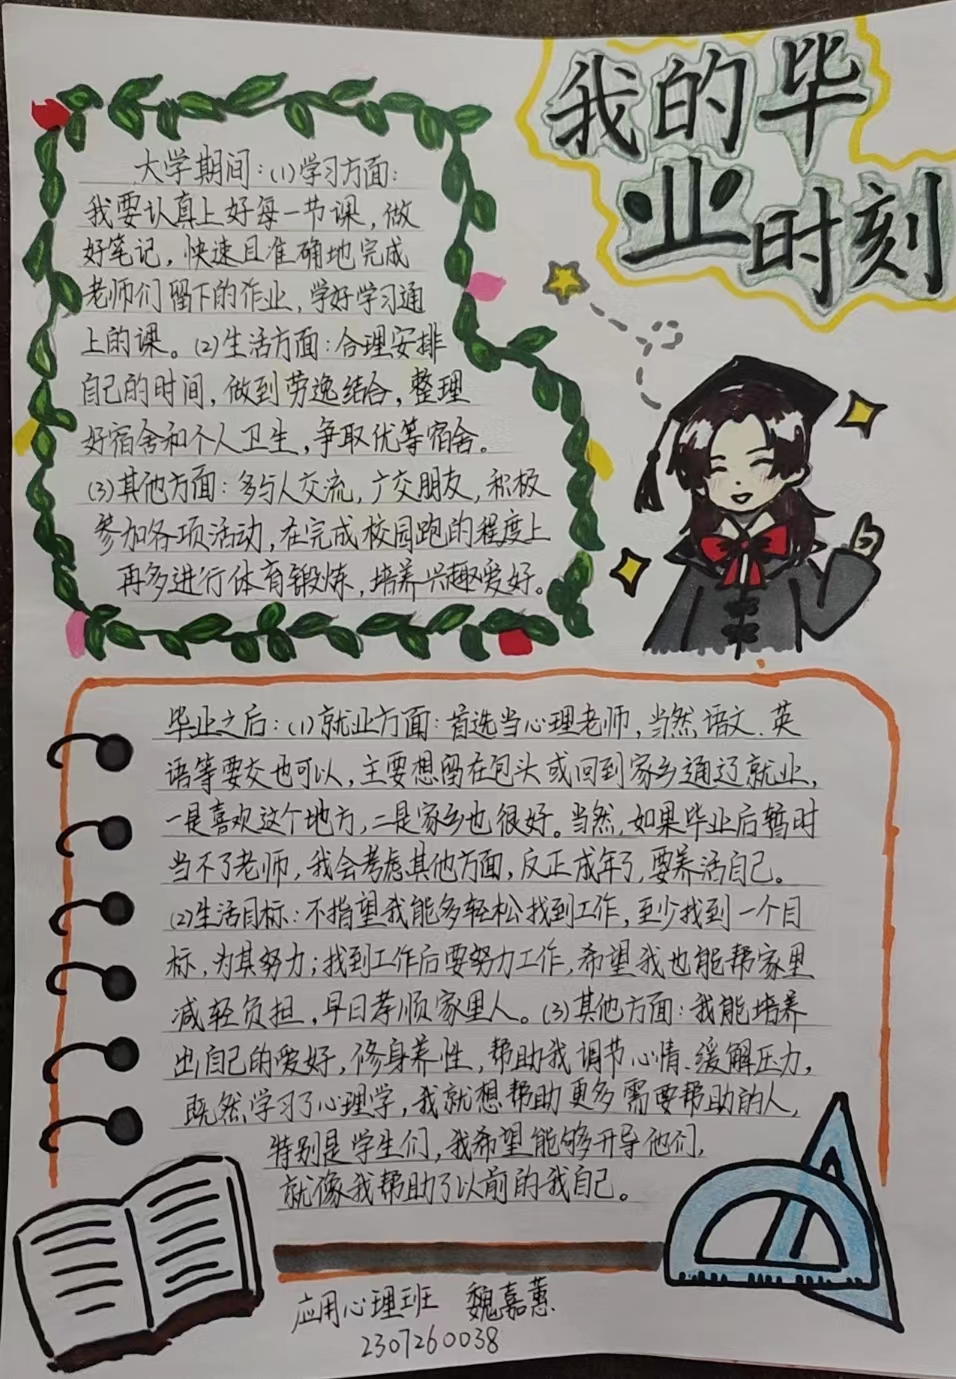 我的毕
业时刻
大学期间：(1)学习方面：
我要认真上好每一节课，做
好笔记，快速且准确地完成
老师们留下的作业，学好学习通
上的课。(2)生活方面：合理安排
自己的时间，做到劳逸结合，整理
好宿舍和个人卫生，争取优等宿舍。
(3)其他方面：多与人交流，广交朋友，积极
参加各项活动，在完成校园跑的程度上
再多进行体育锻炼，培养兴趣爱好。
毕业之后：(1)就业方面：首选当心理老师，当然语文、英
语等要交也可以，主要想留在包头或回到家乡通辽就业，
一是喜欢这个地方，二是家乡也很好。当然，如果毕业后暂时
当不了老师，我会考虑其他方面，反正成年了，要养活自己。
(2)生活目标：不指望我能多轻松找到工作，至少找到一个目
标，为其努力；找到工作后要努力工作，希望我也能帮家里
减轻负担，早日孝顺家里人。(3)其他方面：我能培养
出自己的爱好，修身养性，帮助我调节心情、缓解压力，
既然学习了心理学，我就想帮助更多需要帮助的人，
特别是学生们，我希望能够开导他们，
就像我帮助了以前的我自己。
应用心理班 魏嘉蕙
2307260038